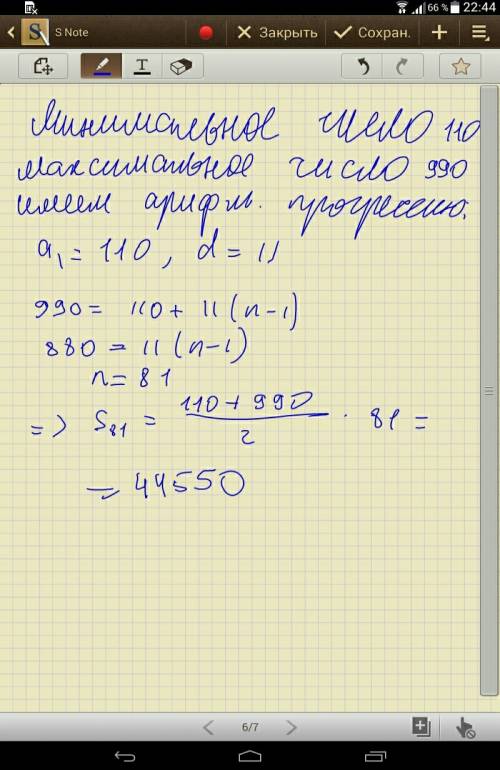 66 % 22:44
S Note
Закрыть
Сохран.
Минимальное число 110
максимальное число 990
имеем арифм. прогрессию:
a₁ = 110 , d = 11
990 = 110 + 11 (n - 1)
880 = 11 (n - 1)
n = 81
=> S₈₁ = (110 + 990)/2 · 81 =
= 44550
6/7